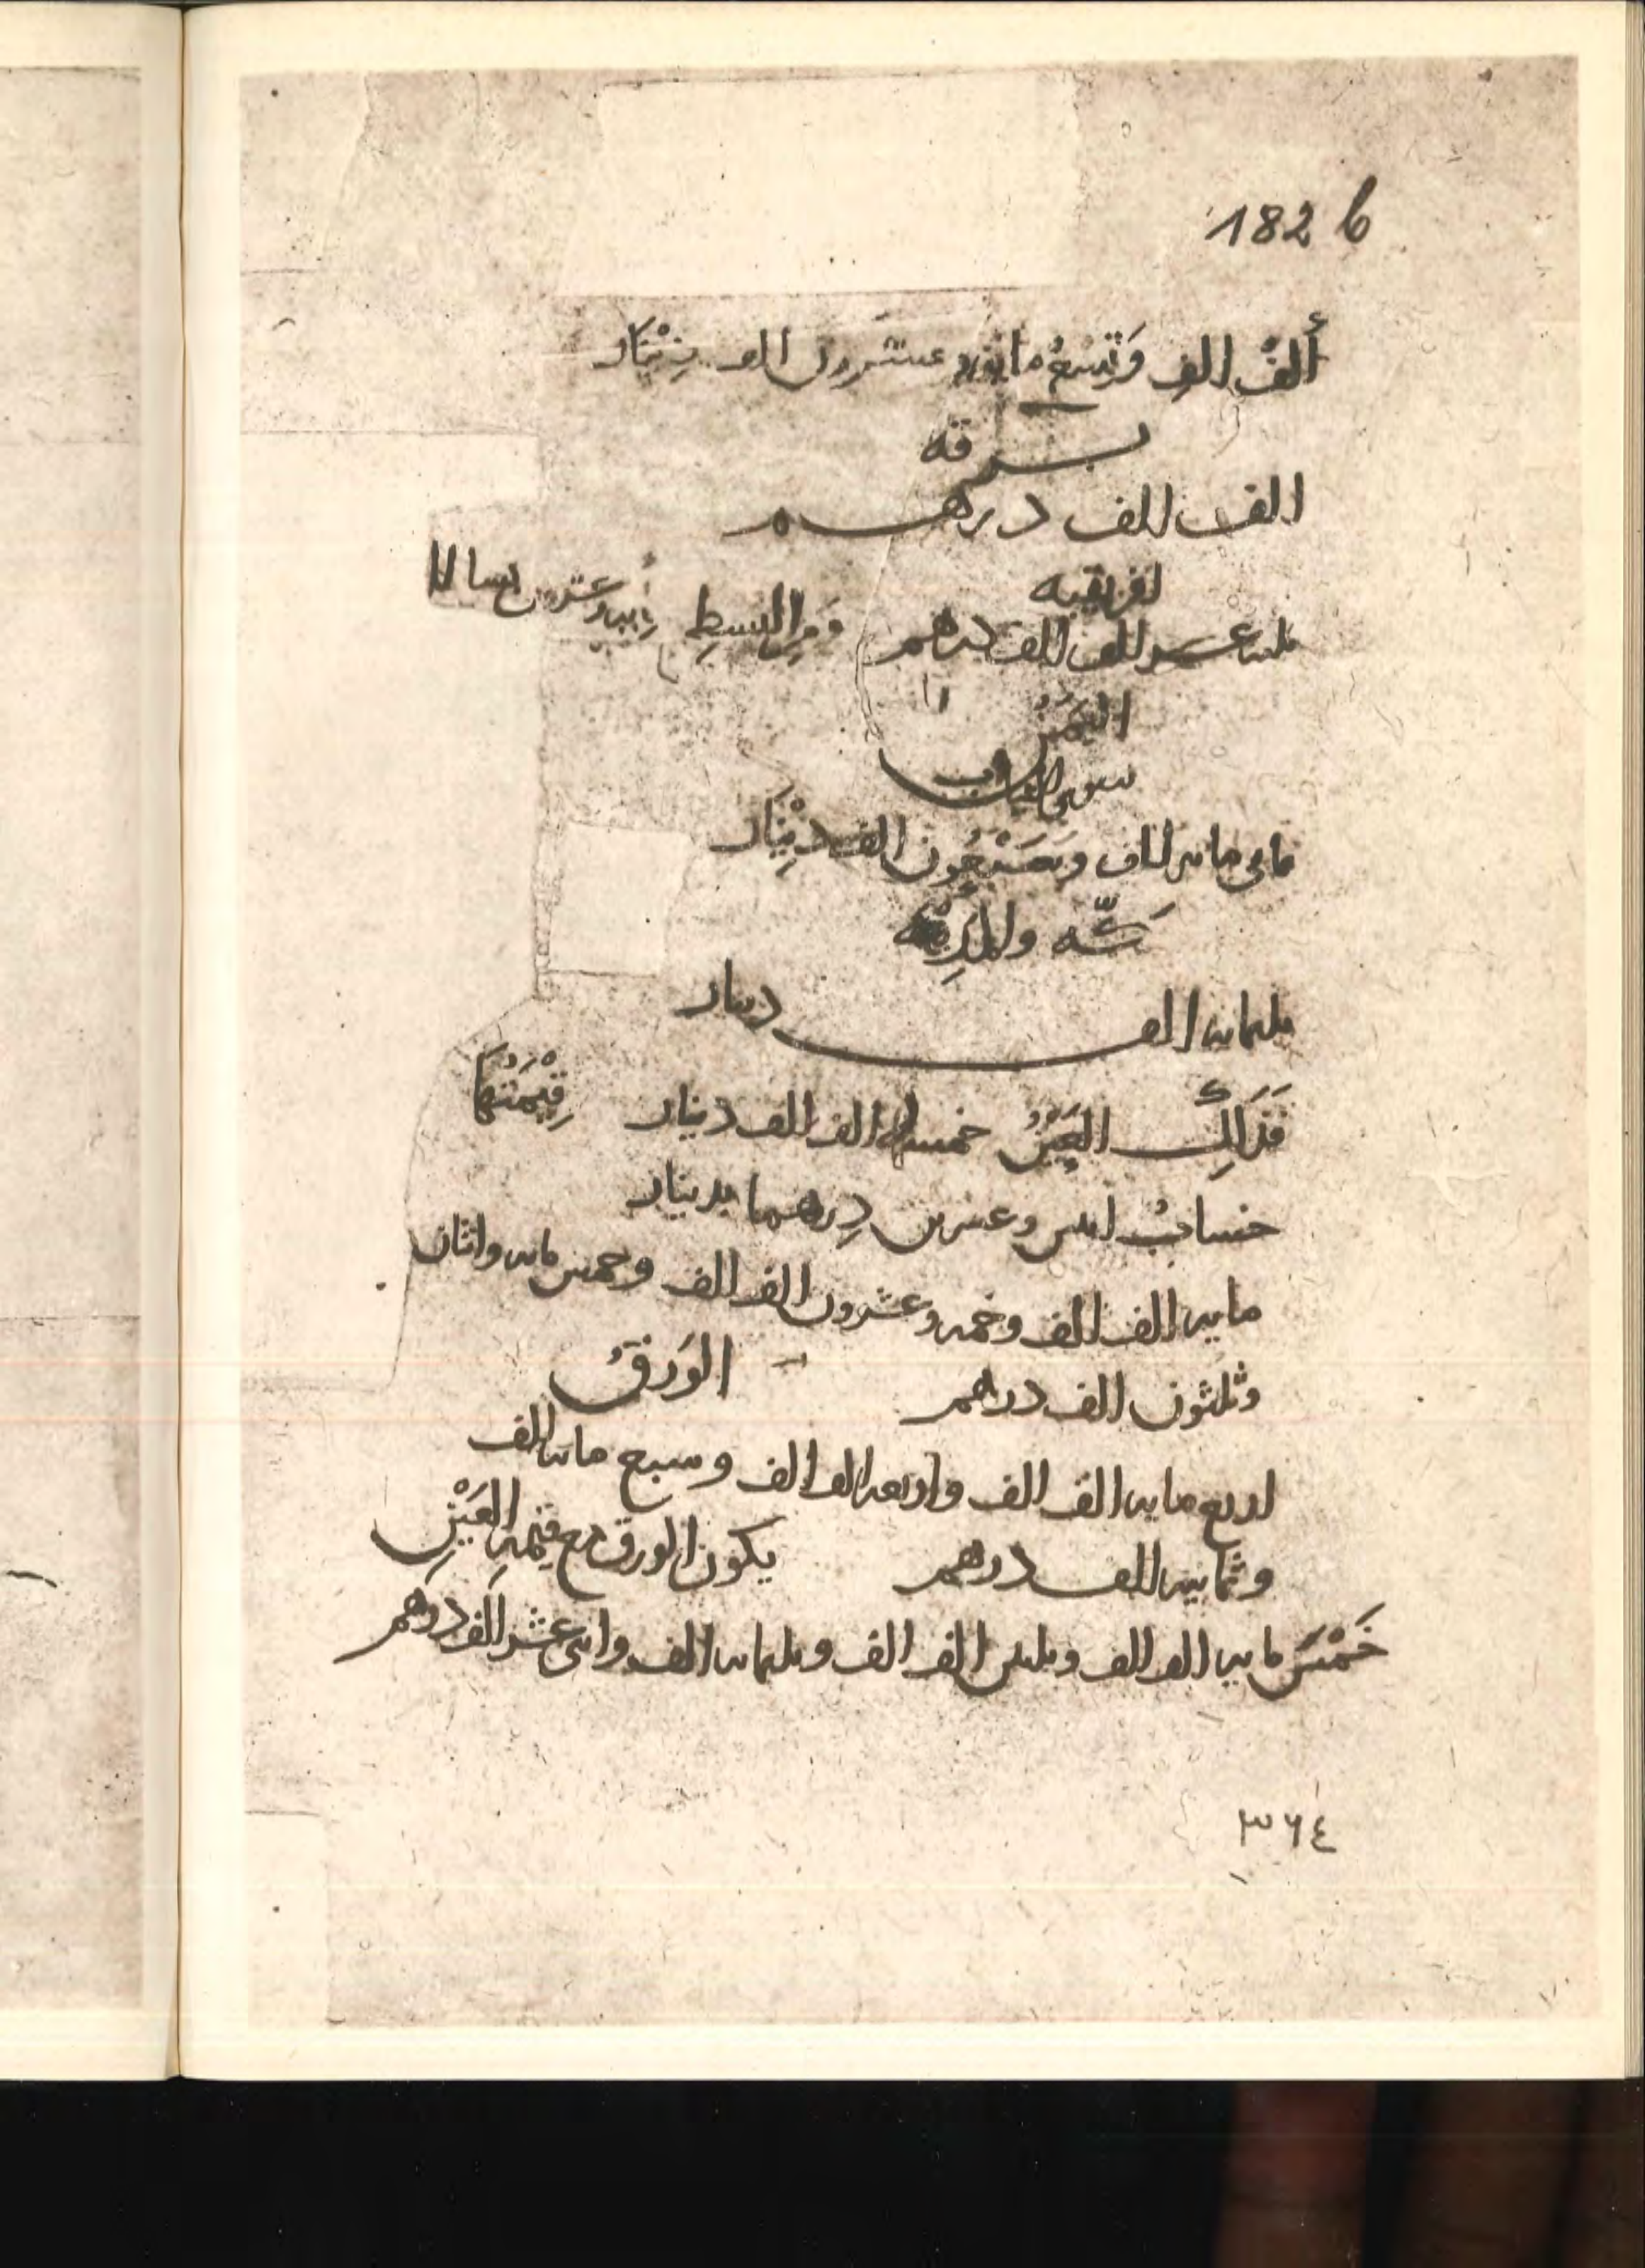 182 b
ألف الف وتسع مايه وعشرون الف دينار
برقه
الف الف درهم
افريقيه
ثلثه عشر الف الف درهم ومن البسط مايه وعشرون بساطا
اليمن
سوى الثياب
ثماني مايه الف وسبعون الف دينار
مكه والمدينه
ثلثمايه الف دينار
فذلك العين خمسه الف الف دينار قيمتها
حساب اثنين وعشرين درهما بدينار
مايه الف الف وخمسه وعشرون الف الف وخمس مايه واثنان
وثلثون الف درهم الورق
اربع مايه الف الف واربعه الف الف وسبع مايه الف
وثمانيه الف درهم يكون الورق مع قيمة العين
خمس مايه الف الف وثلثين الف الف وثلثمايه الف واثني عشر الف درهم
٣٦٤